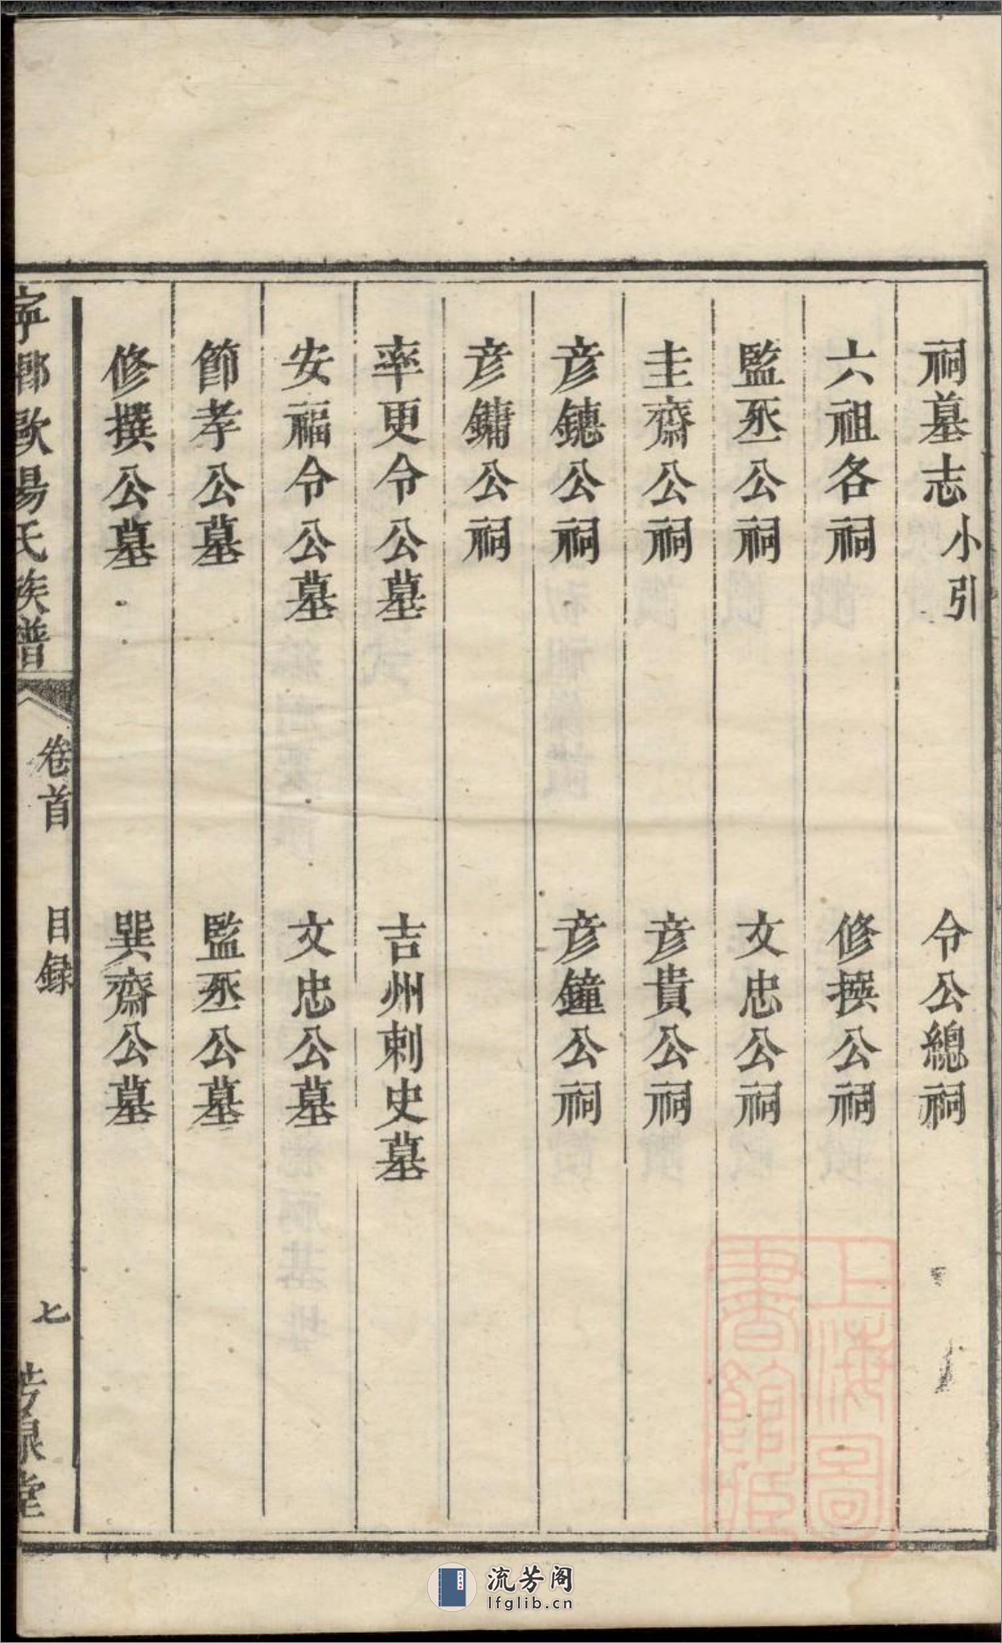 祠墓志小引　令公總祠
六祖各祠　修撰公祠
監丞公祠　文忠公祠
圭齋公祠　彦貴公祠
彦鏸公祠　彦鐘公祠
彦鏞公祠
率更令公墓　吉州刺史墓
安福令公墓　文忠公墓
節孝公墓　監丞公墓
修撰公墓　巽齋公墓
寧鄉歐陽氏族譜　卷首　目録　七　芳泉堂
上海圖書館藏
流芳阁
lfglib.cn